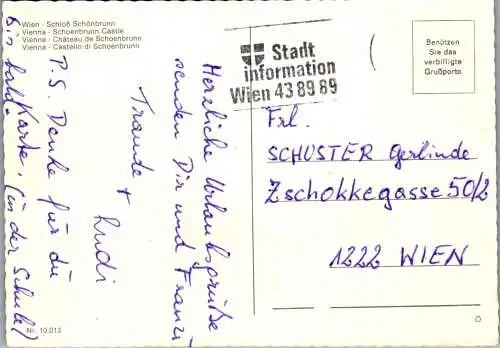 Wien - Schloß Schönbrunn
Vienna - Schoenbrunn Castle
Vienne - Château de Schoenbrunn
Vienna - Castello di Schoenbrunn
Stadt
information
Wien 43 89 89
Benützen
Sie das
verbilligte
Grußporto
Herzliche Urlaubsgrüße
senden Dir und Franzi
Traude + Rudi
P.S. Danke für die
Karte. (in der Schule)
Bis bald.
Frl.
SCHUSTER Gerlinde
Zschokkegasse 50/2
1222 WIEN
Nr. 10.013